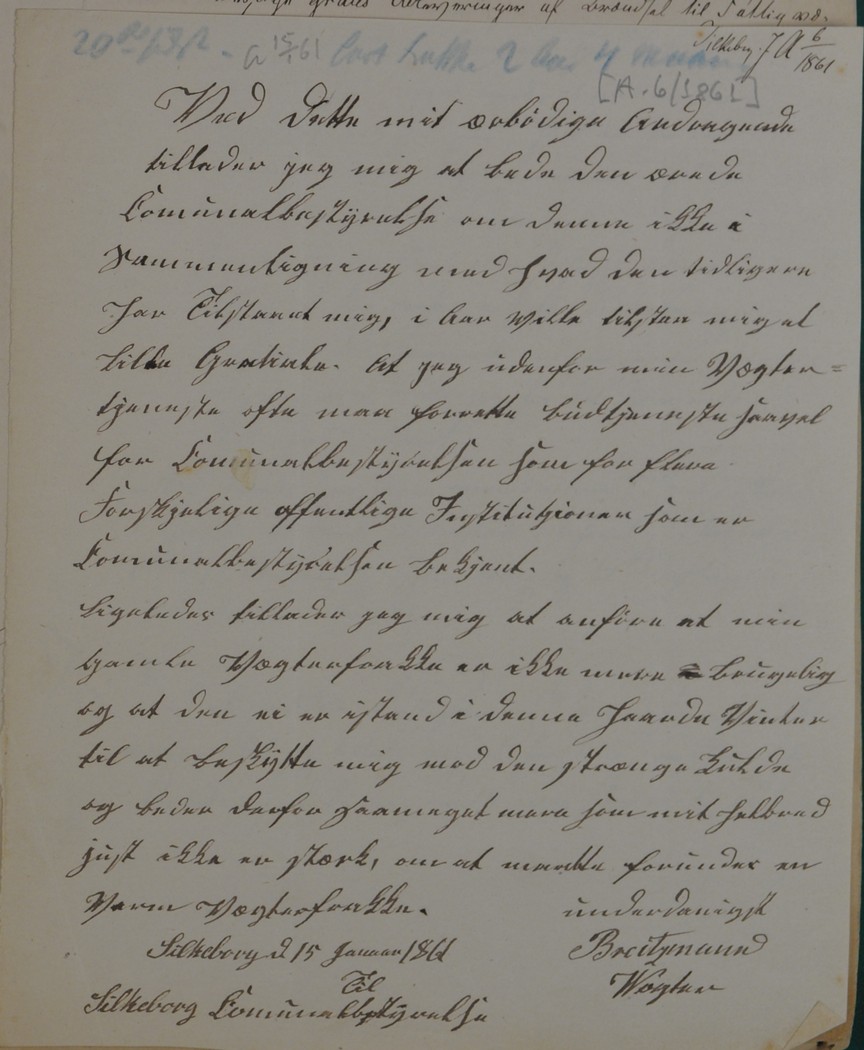 grates Afleveringer af Brændsel til Fattigvæ-
Silkeborg J A 6/1861
20
a 15/1 61
[A. 6/1861]
Ved dette mit ærbödige Andragende
tillader jeg mig at bede den ærede
Comunalbestÿrelse om denne ikke i
Sammenligning med hvad den tidligere
har Tilstaaet mig, i Aar ville tilstaa mig et
lille Gratiale. At jeg udenfor min Vægter=
tjeneste ofte maa forrette Budtjeneste saavel
for Comunalbestÿrelsen som for flere
Forskjelige offentlige Institutjioner som er
Comunalbestÿrelsen bekjent.
Ligeledes tillader jeg mig at anföre at min
gamle Vægterfrakke er ikke mere brugelig
og at den ei er istand i denne haarde Vinter
til at beskÿtte mig mod den strænge Kulde
og beder derfor saameget mere som mit Helbred
just ikke er stærk, om at maatte forundes en
Varm Vægterfrakke.
underdanigst
Silkeborg d 15 Januar 1861
Breitzmann
Vægter
Til
Silkeborg Comunalbstyrelse